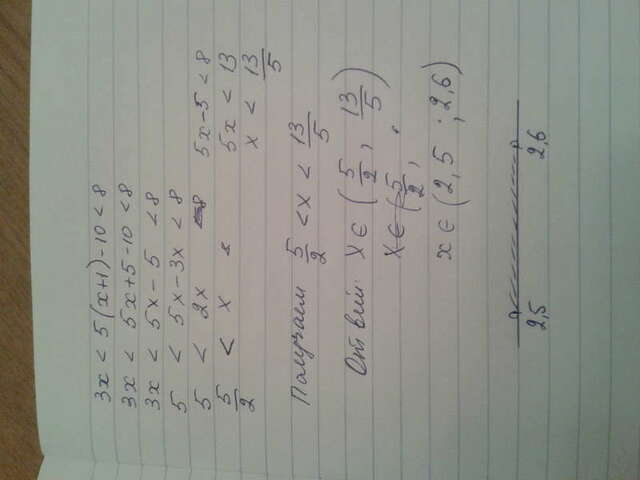 3x < 5(x+1)-10 < 8
3x < 5x+5-10 < 8
3x < 5x-5 < 8
5 < 5x-3x < 8
5 < 2x < 8 5x-5 < 8
5/2 < x < 5x < 13
x < 13/5
Получаем 5/2 < x < 13/5
Ответ: x∈(5/2, 13/5)
x∈(5/2,
x∈(2,5 ; 2,6)
2,5 2,6